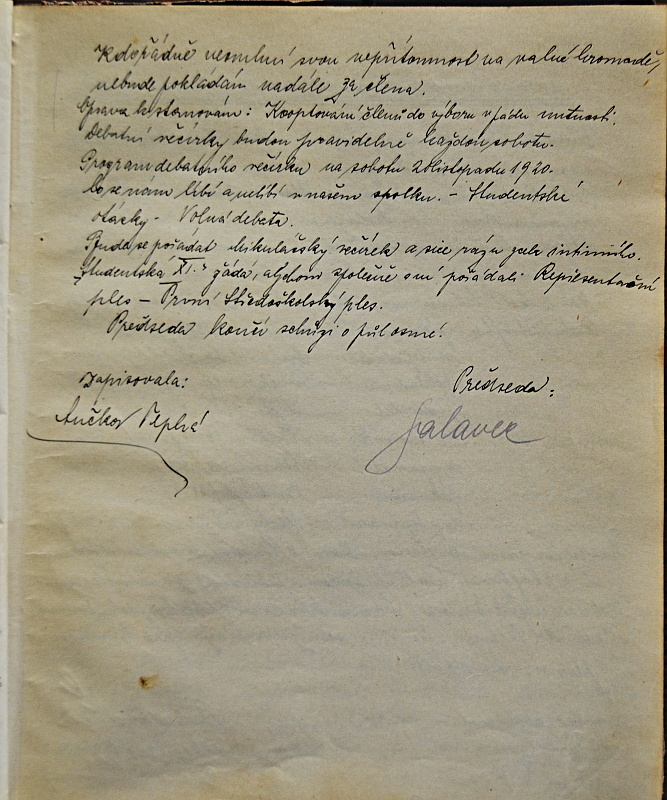 Kdo řádně neomluví svou nepřítomnost na valné hromadě,
nebude pokládán nadále za člena.
Oprava k stanovám: Kooptování členů do výboru v pádu nutnosti.
Debatní večírky budou pravidelně každou sobotu.
Program debatního večírku na sobotu 20 listopadu 1920.
Co se nám líbí a nelíbí v našem spolku. – Studentské
otázky – Volná debata.
Bude se pořádat Mikulášský večírek a sice rázu zcela intimního.
Studentská XI. žádá, abychom společně s ní pořádali Representační
ples – První Středoškolský ples.
Předseda končí schůzi o půl osmé.
Zapisovala:
Předseda:
Ančka Teplá